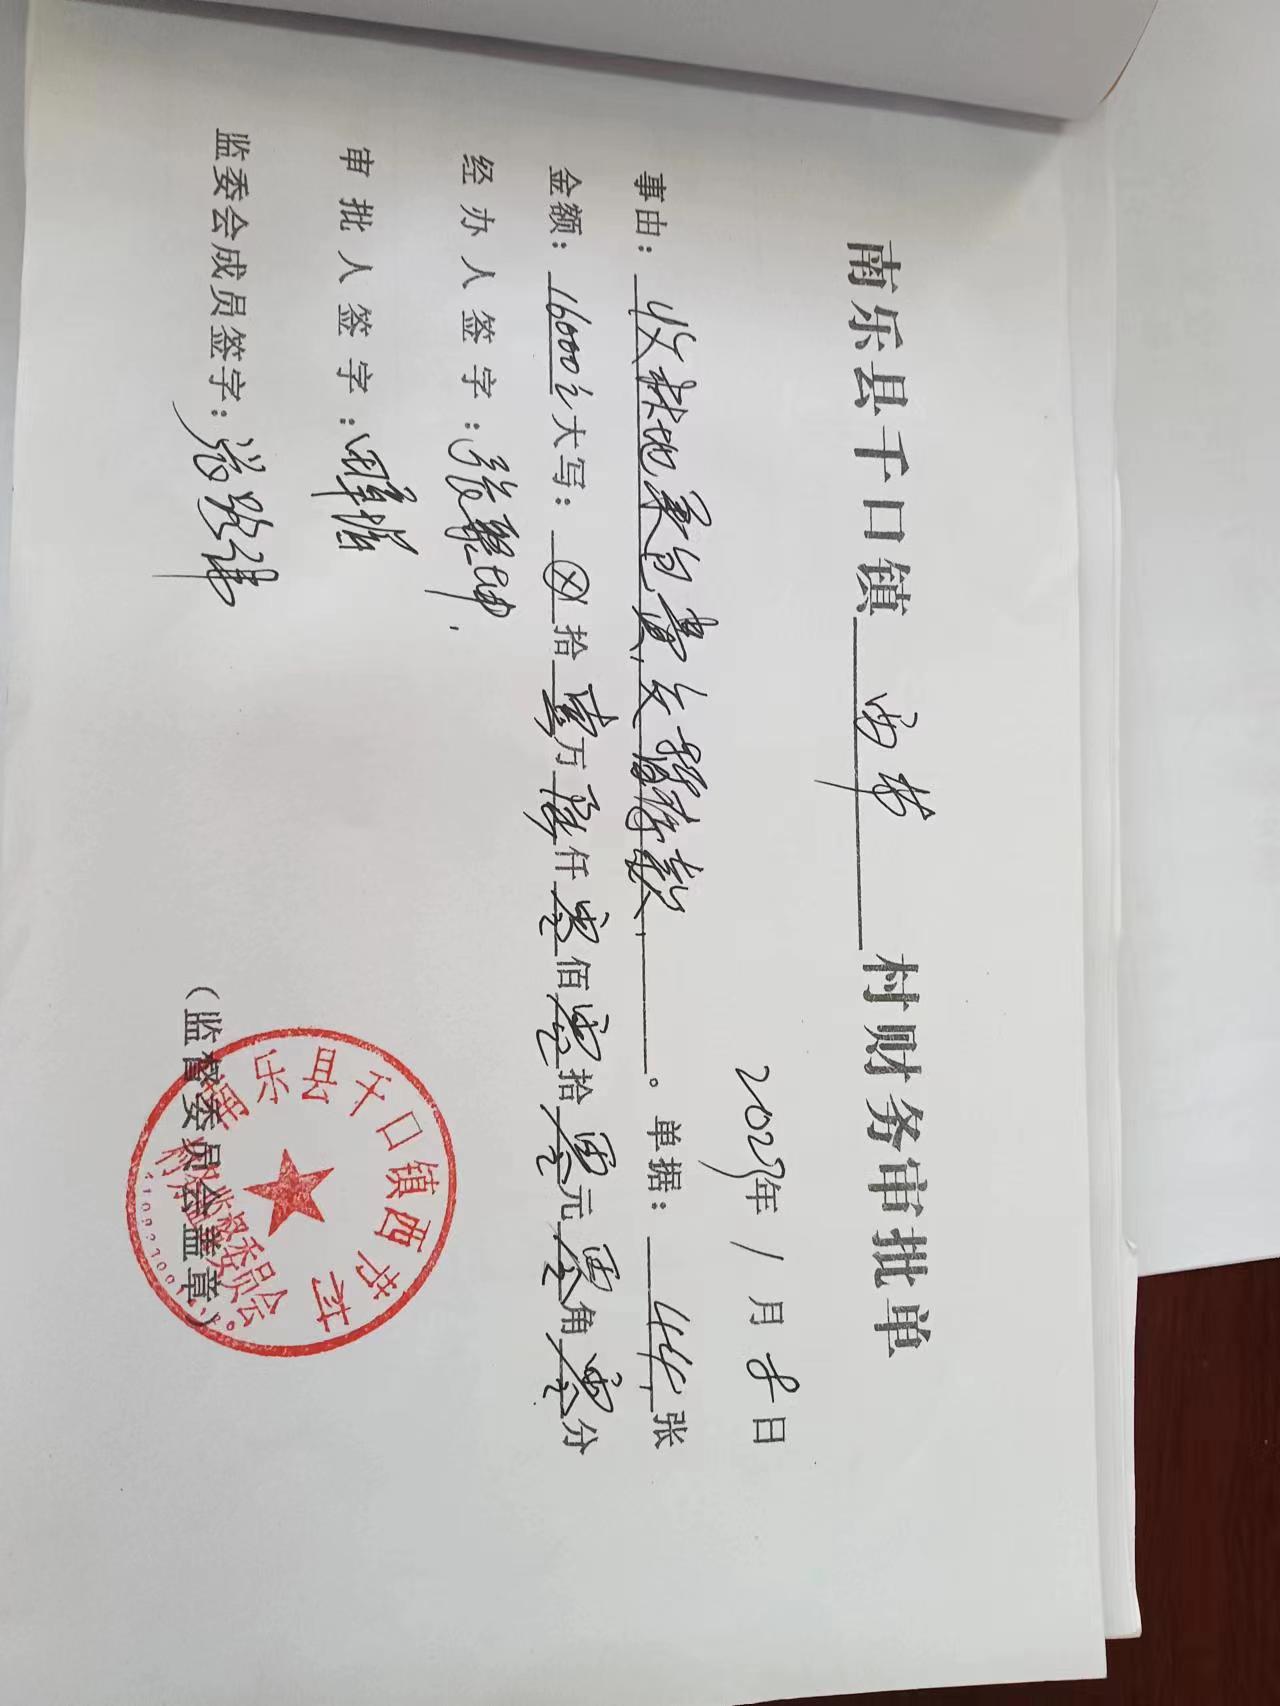 南乐县千口镇 西节 村财务审批单
2023年1月8日
事由：收林地承包费欠款。单据：44张
金额：16000元大写：⊗拾壹万陆仟零佰零拾零元零角零分
经办人签字：张
审批人签字：
监委会成员签字：
（监督委员会盖章）
南乐县千口镇西节村
村务监督委员会